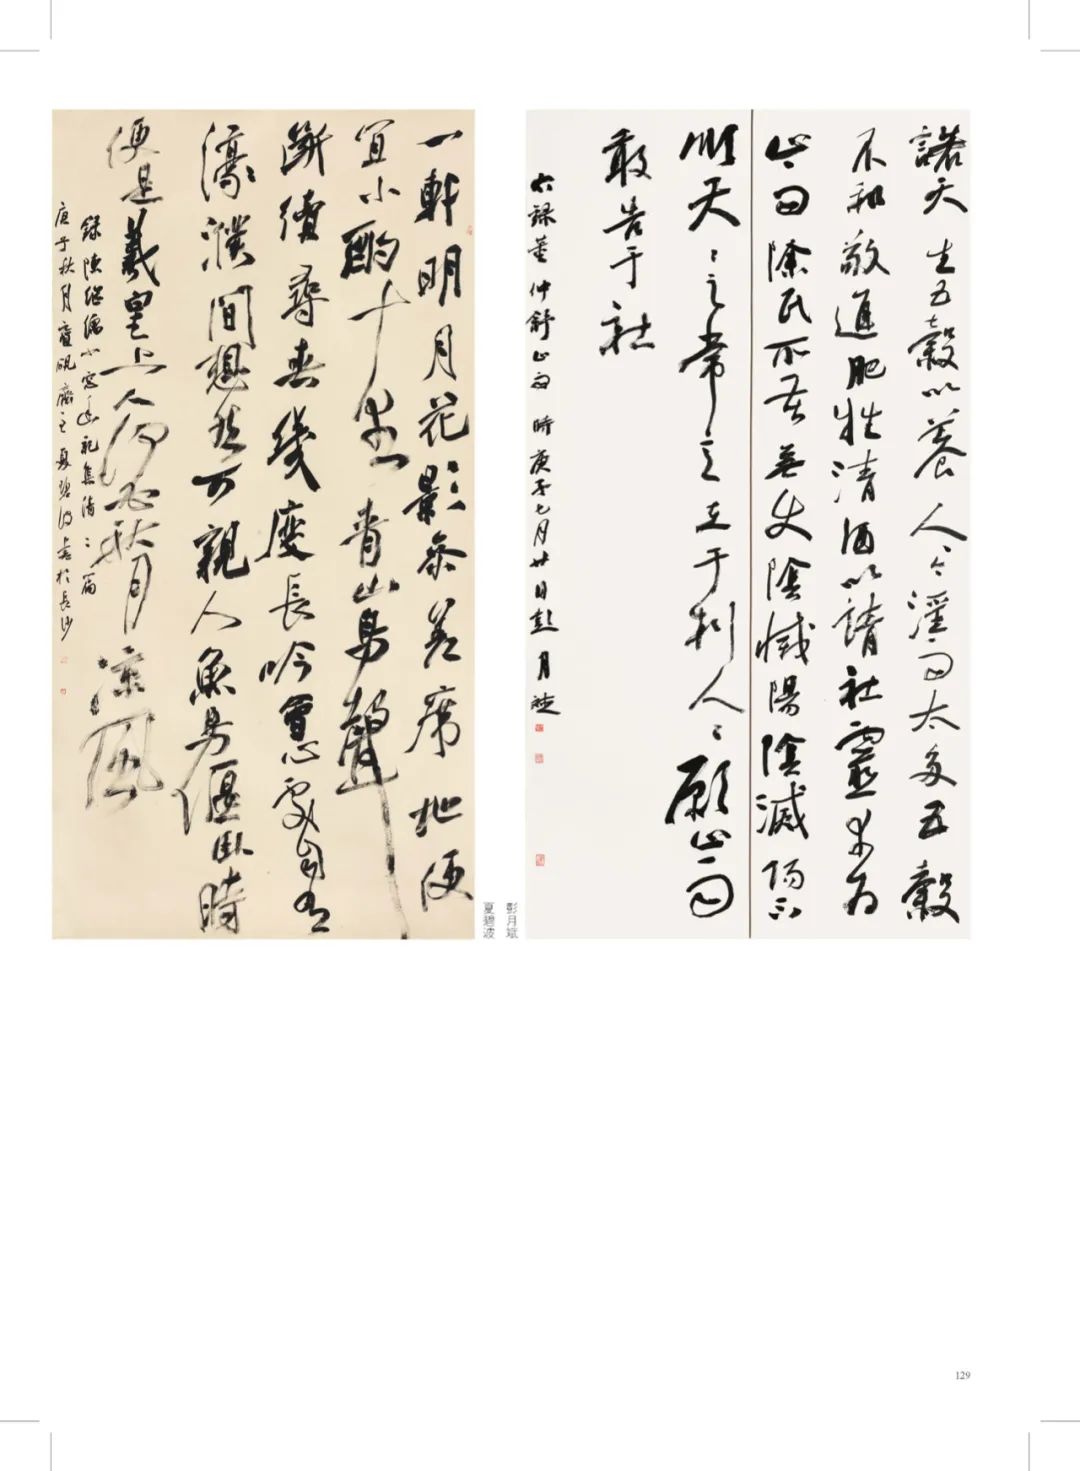 諾天生五穀以養人今淫雨太多五穀
不和敬進肥牲清酒以請社靈幸为
止雨除民所苦無使陰滅陽陰滅陽不
順天々之常意在于利人々願止雨
敢告于社
右録董仲舒止雨 時庚子七月廿日彭月斌
一軒明月花影參差席地便
宜小酌十里青山鳥聲
斷續尋春幾度長吟會心處自有
濠濮間想然可親人魚鳥偃卧時
便是羲皇上人何必秋月凉風
録陳繼儒小窗幽記集倩二篇
庚子秋月寶硯齋主夏碧波書於長沙
彭月斌
夏碧波
129